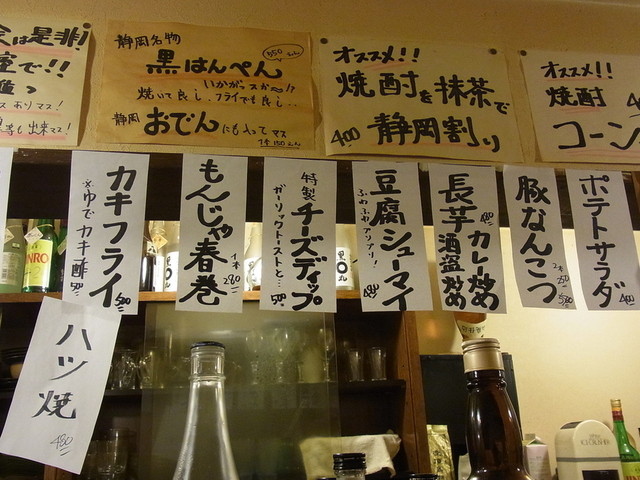 は是非!
座で!!
ス ありマス!
も出来マス!
静岡名物
黒はんぺん
550
いかがっスか〜!!
焼いて良し、フライでも良し..
静岡
おでんにも入ってマス
オススメ!!
焼酎を抹茶で
400 静岡割り
オススメ!!
焼酎
コーン
カキフライ 580
※ゆでカキ酢
もんじゃ春巻
1本 280
特製
チーズディップ
ガーリックトーストと… 500
豆腐シューマイ
ふわふわアツアツ! 480
長芋
カレー炒め
酒盗炒め
480
豚なんこつ
ポテトサラダ
480
ハツ焼
480
NRO